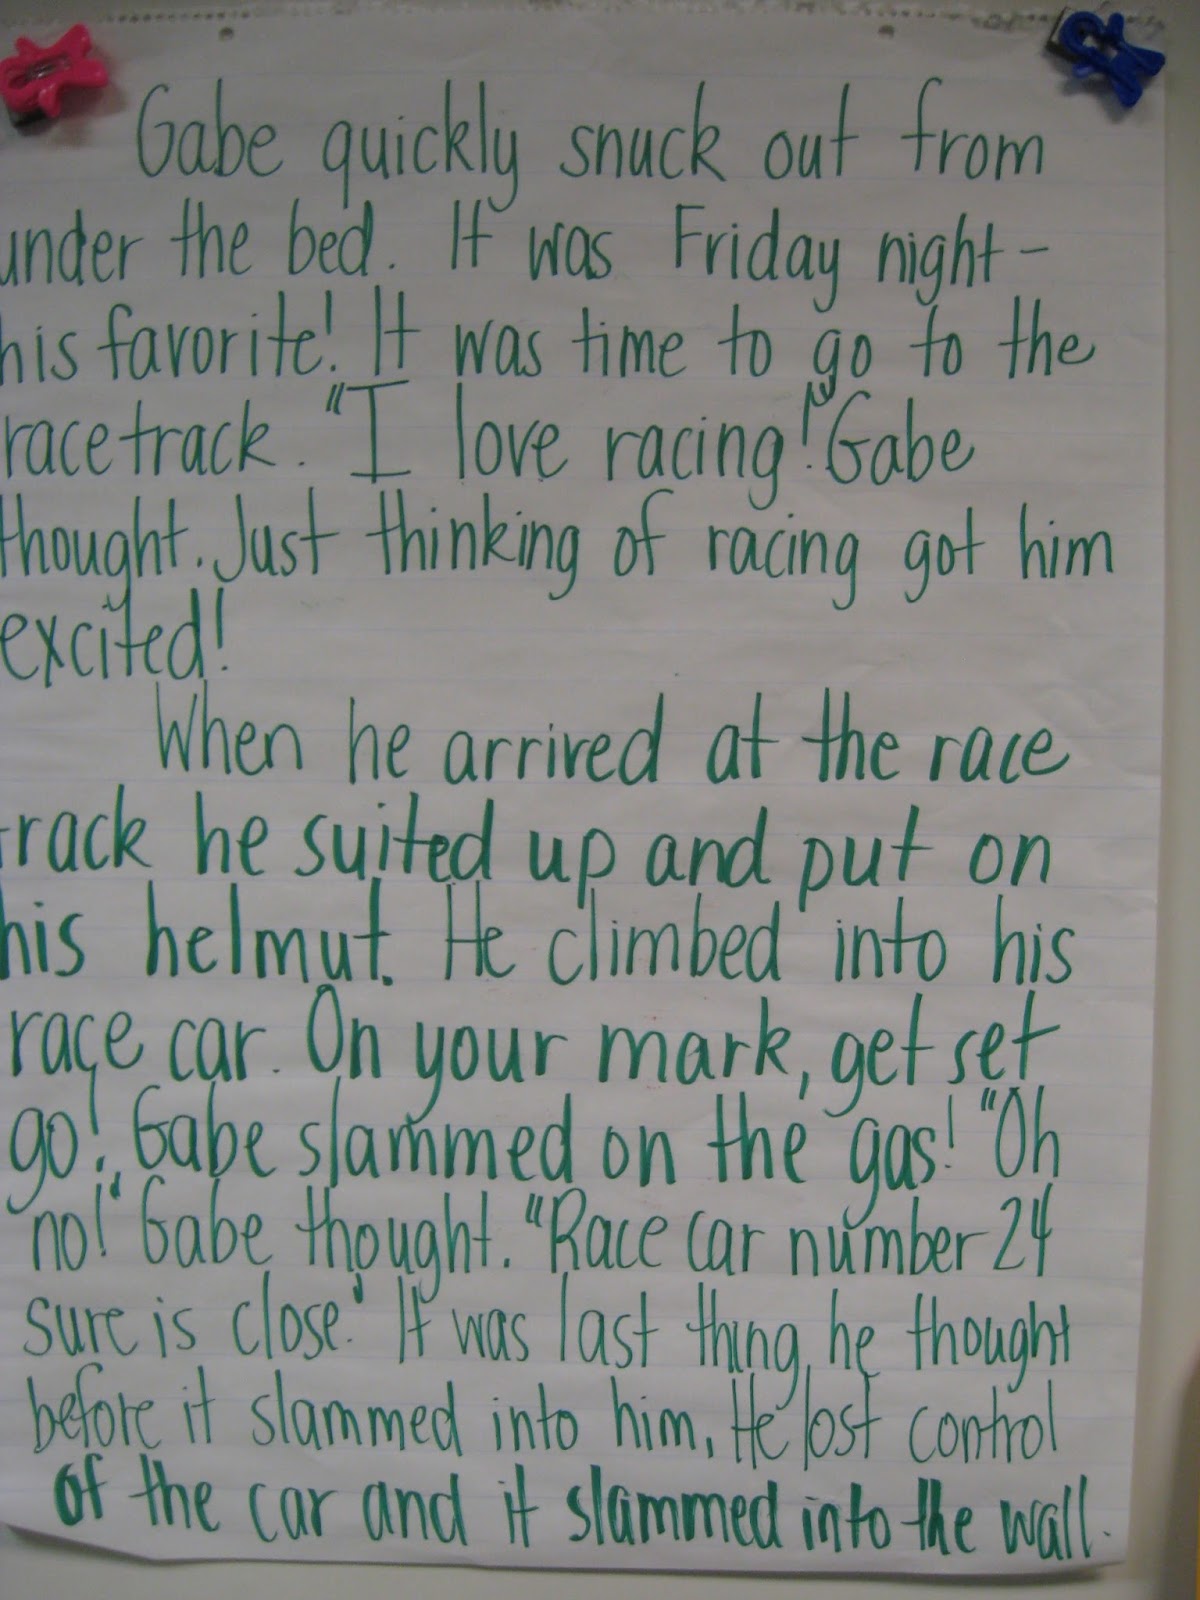 Gabe quickly snuck out from
under the bed. It was Friday night-
his favorite! It was time to go to the
racetrack. "I love racing!" Gabe
thought. Just thinking of racing got him
excited!
When he arrived at the race
track he suited up and put on
his helmut. He climbed into his
race car. On your mark, get set
go! Gabe slammed on the gas! "Oh
no!" Gabe thought. "Race car number 24
sure is close." It was last thing he thought
before it slammed into him. He lost control
of the car and it slammed into the wall.